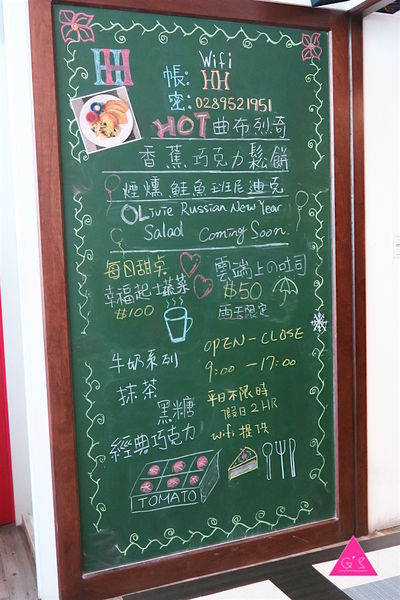 HH
Wifi
帳: HH
密: 0289521951
HOT 曲布列奇
香蕉巧克力鬆餅
煙燻鮭魚班尼迪克
OLivie Russian New Year
Salad Coming Soon.
每月甜点
幸福起士蔬菜
$100
雲端上の吐司
$50
雨天限定
OPEN-CLOSE
9:00-17:00
牛奶系列
抹茶
黑糖
經典巧克力
平日不限時
假日2HR
Wifi提供
TOMATO
G'S